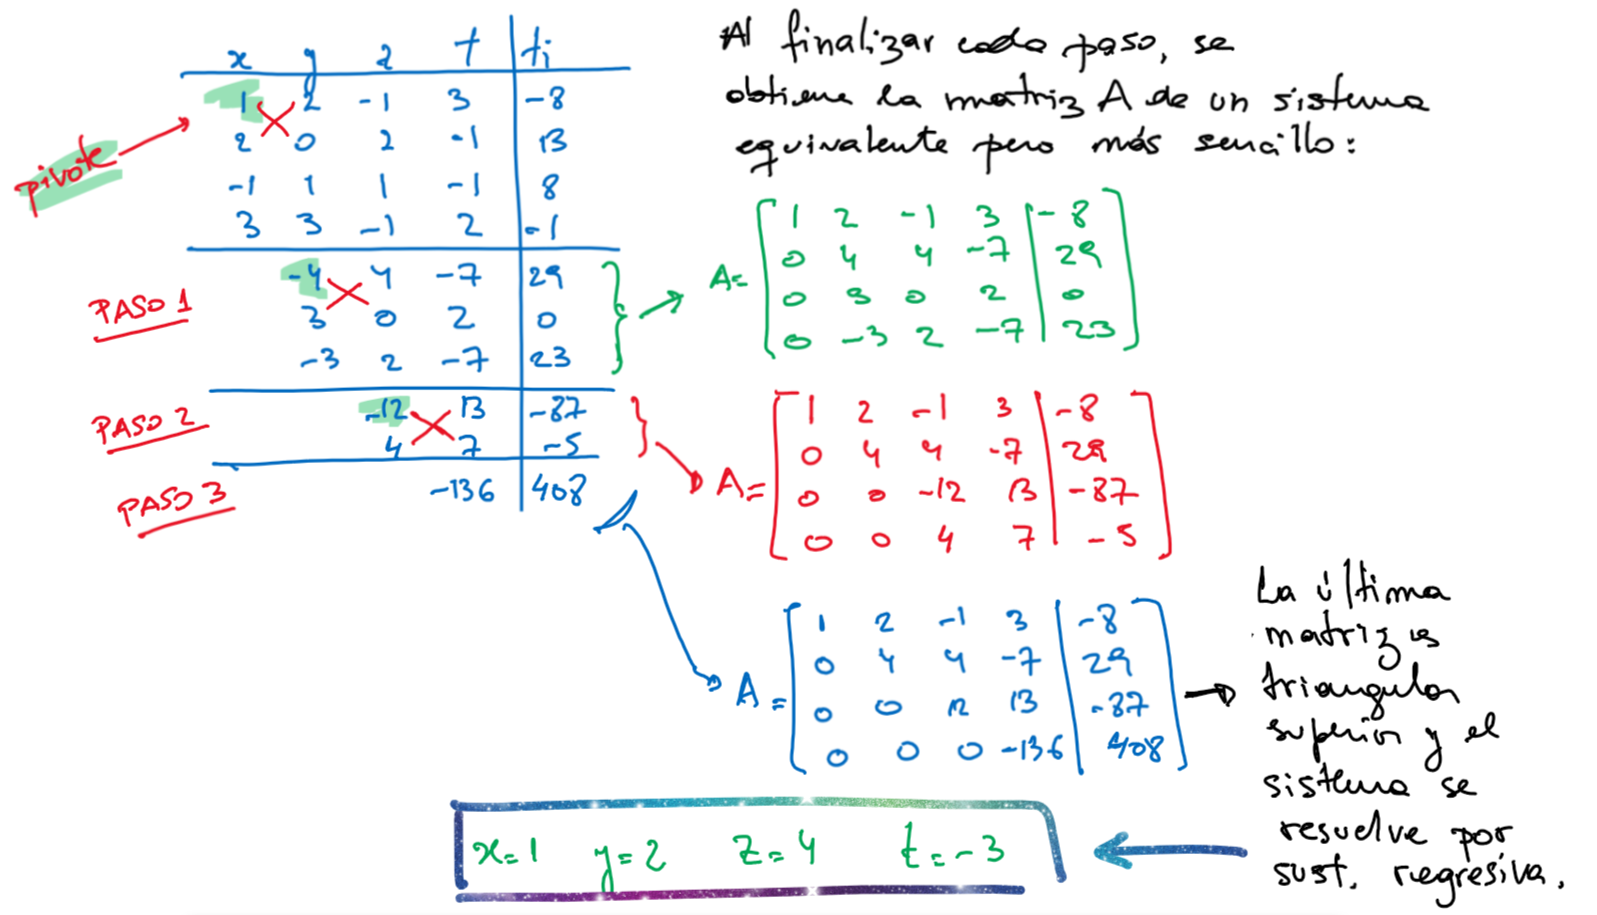 x y z t ti
1 2 -1 3 -8
2 0 2 -1 13
-1 1 1 -1 8
3 3 -1 2 -1
pivote
PASO 1
-4 4 -7 29
3 0 2 0
-3 2 -7 23
PASO 2
-12 13 -87
4 7 -5
PASO 3
-136 408
Al finalizar cada paso, se
obtiene la matriz A de un sistema
equivalente pero más sencillo:
A=
1 2 -1 3 -8
0 4 4 -7 29
0 3 0 2 0
0 -3 2 -7 23
A=
1 2 -1 3 -8
0 4 4 -7 29
0 0 -12 13 -87
0 0 4 7 -5
A=
1 2 -1 3 -8
0 4 4 -7 29
0 0 12 13 -87
0 0 0 -136 408
La última
matriz es
triangular
superior y el
sistema se
resuelve por
sust. regresiva.
x=1 y=2 z=4 t=-3